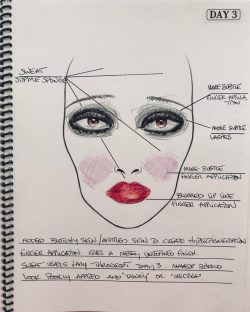 DAY 3
SWEAT
STIPPLE SPONGE
MORE SUBTLE
FINGER APPLICA
TION.
MORE SUBTLE
LASHES
MORE SUBTLE
FINGER APPLICATION
SMUDGED LIP LINE
FINGER APPLICATION
ADDED BLOTCHY SKIN / MOTTLED SKIN TO CREATE HYPERPIGMENTATION
FINGER APPLICATION GIVES A MESSY, UNREFINED FINISH.
SWEAT LEVELS VARY THROUGHOUT DAY 3. MAKEUP SHOULD
LOOK POORLY APPLIED AND OR